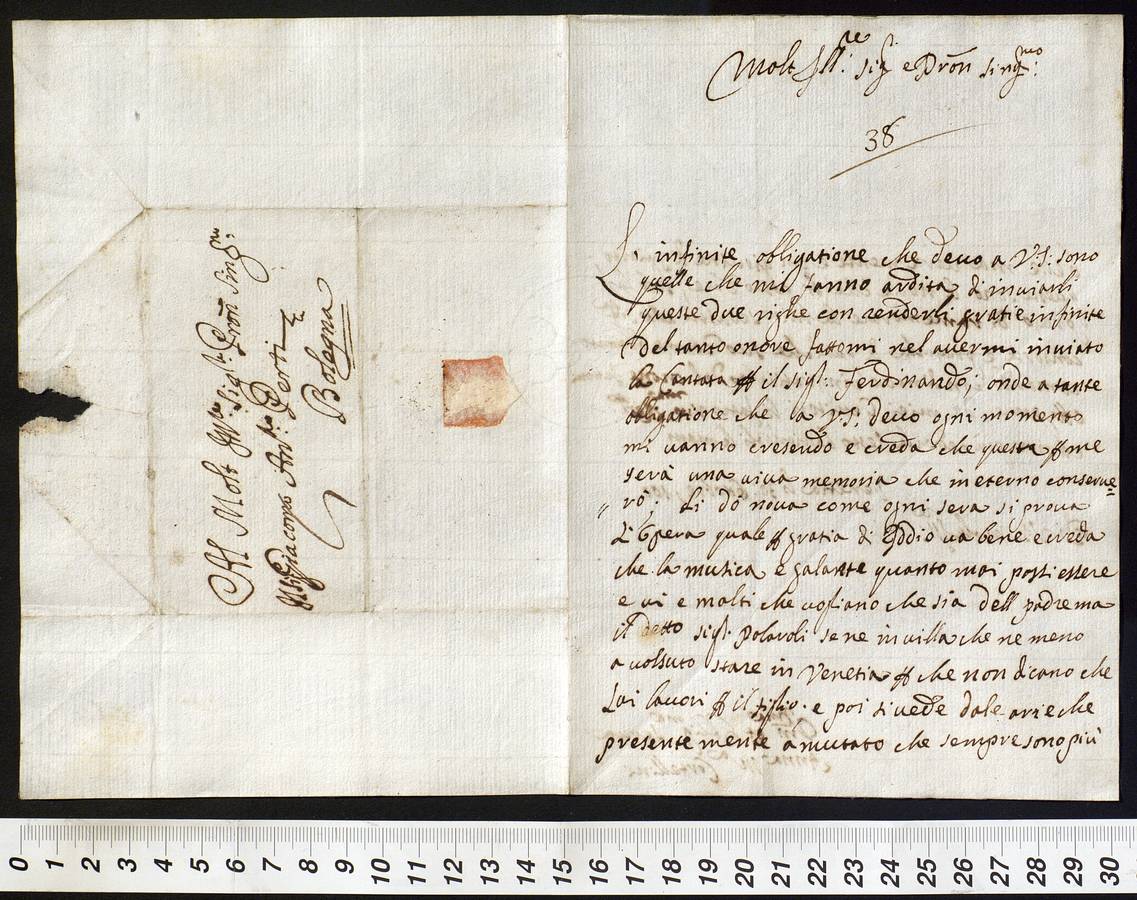 Al Molt Ill:re Sig:r e Pron Sing:mo
Il Sig: Giacopo Ant:o Perti
Bologna
Molt Ill:re Sig:r e Pron Sing:mo
38
L'infinite obligatione che deuo a V:S: sono
quelle che mi fanno ardita di inuiarli
queste due righe con renderli gratie infinite
del tanto onore fattomi nel auermi inuiato
la Cantata p il sig:r Ferdinando; onde a tante
obligatione che la VS: deuo ogni momento
mi uanno cresendo e creda che questa p me
serà una uiua memoria che in eterno conserue=
„ rò; li dò noua come ogni sera si proua
L'Opera quale p gratia di Iddio ua bene e creda
che la musica e galante quanto mai possi essere
e ui e molti che uogliano che sia dell padre ma
il detto sig:r Polaroli se ne in uilla che ne meno
a uolsuto stare in Venetia p che non dicano che
Lui lauori p il figlio. e poi si uede dale arie che
presente mente a mutato che sempre sono più
0 1 2 3 4 5 6 7 8 9 10 11 12 13 14 15 16 17 18 19 20 21 22 23 24 25 26 27 28 29 30